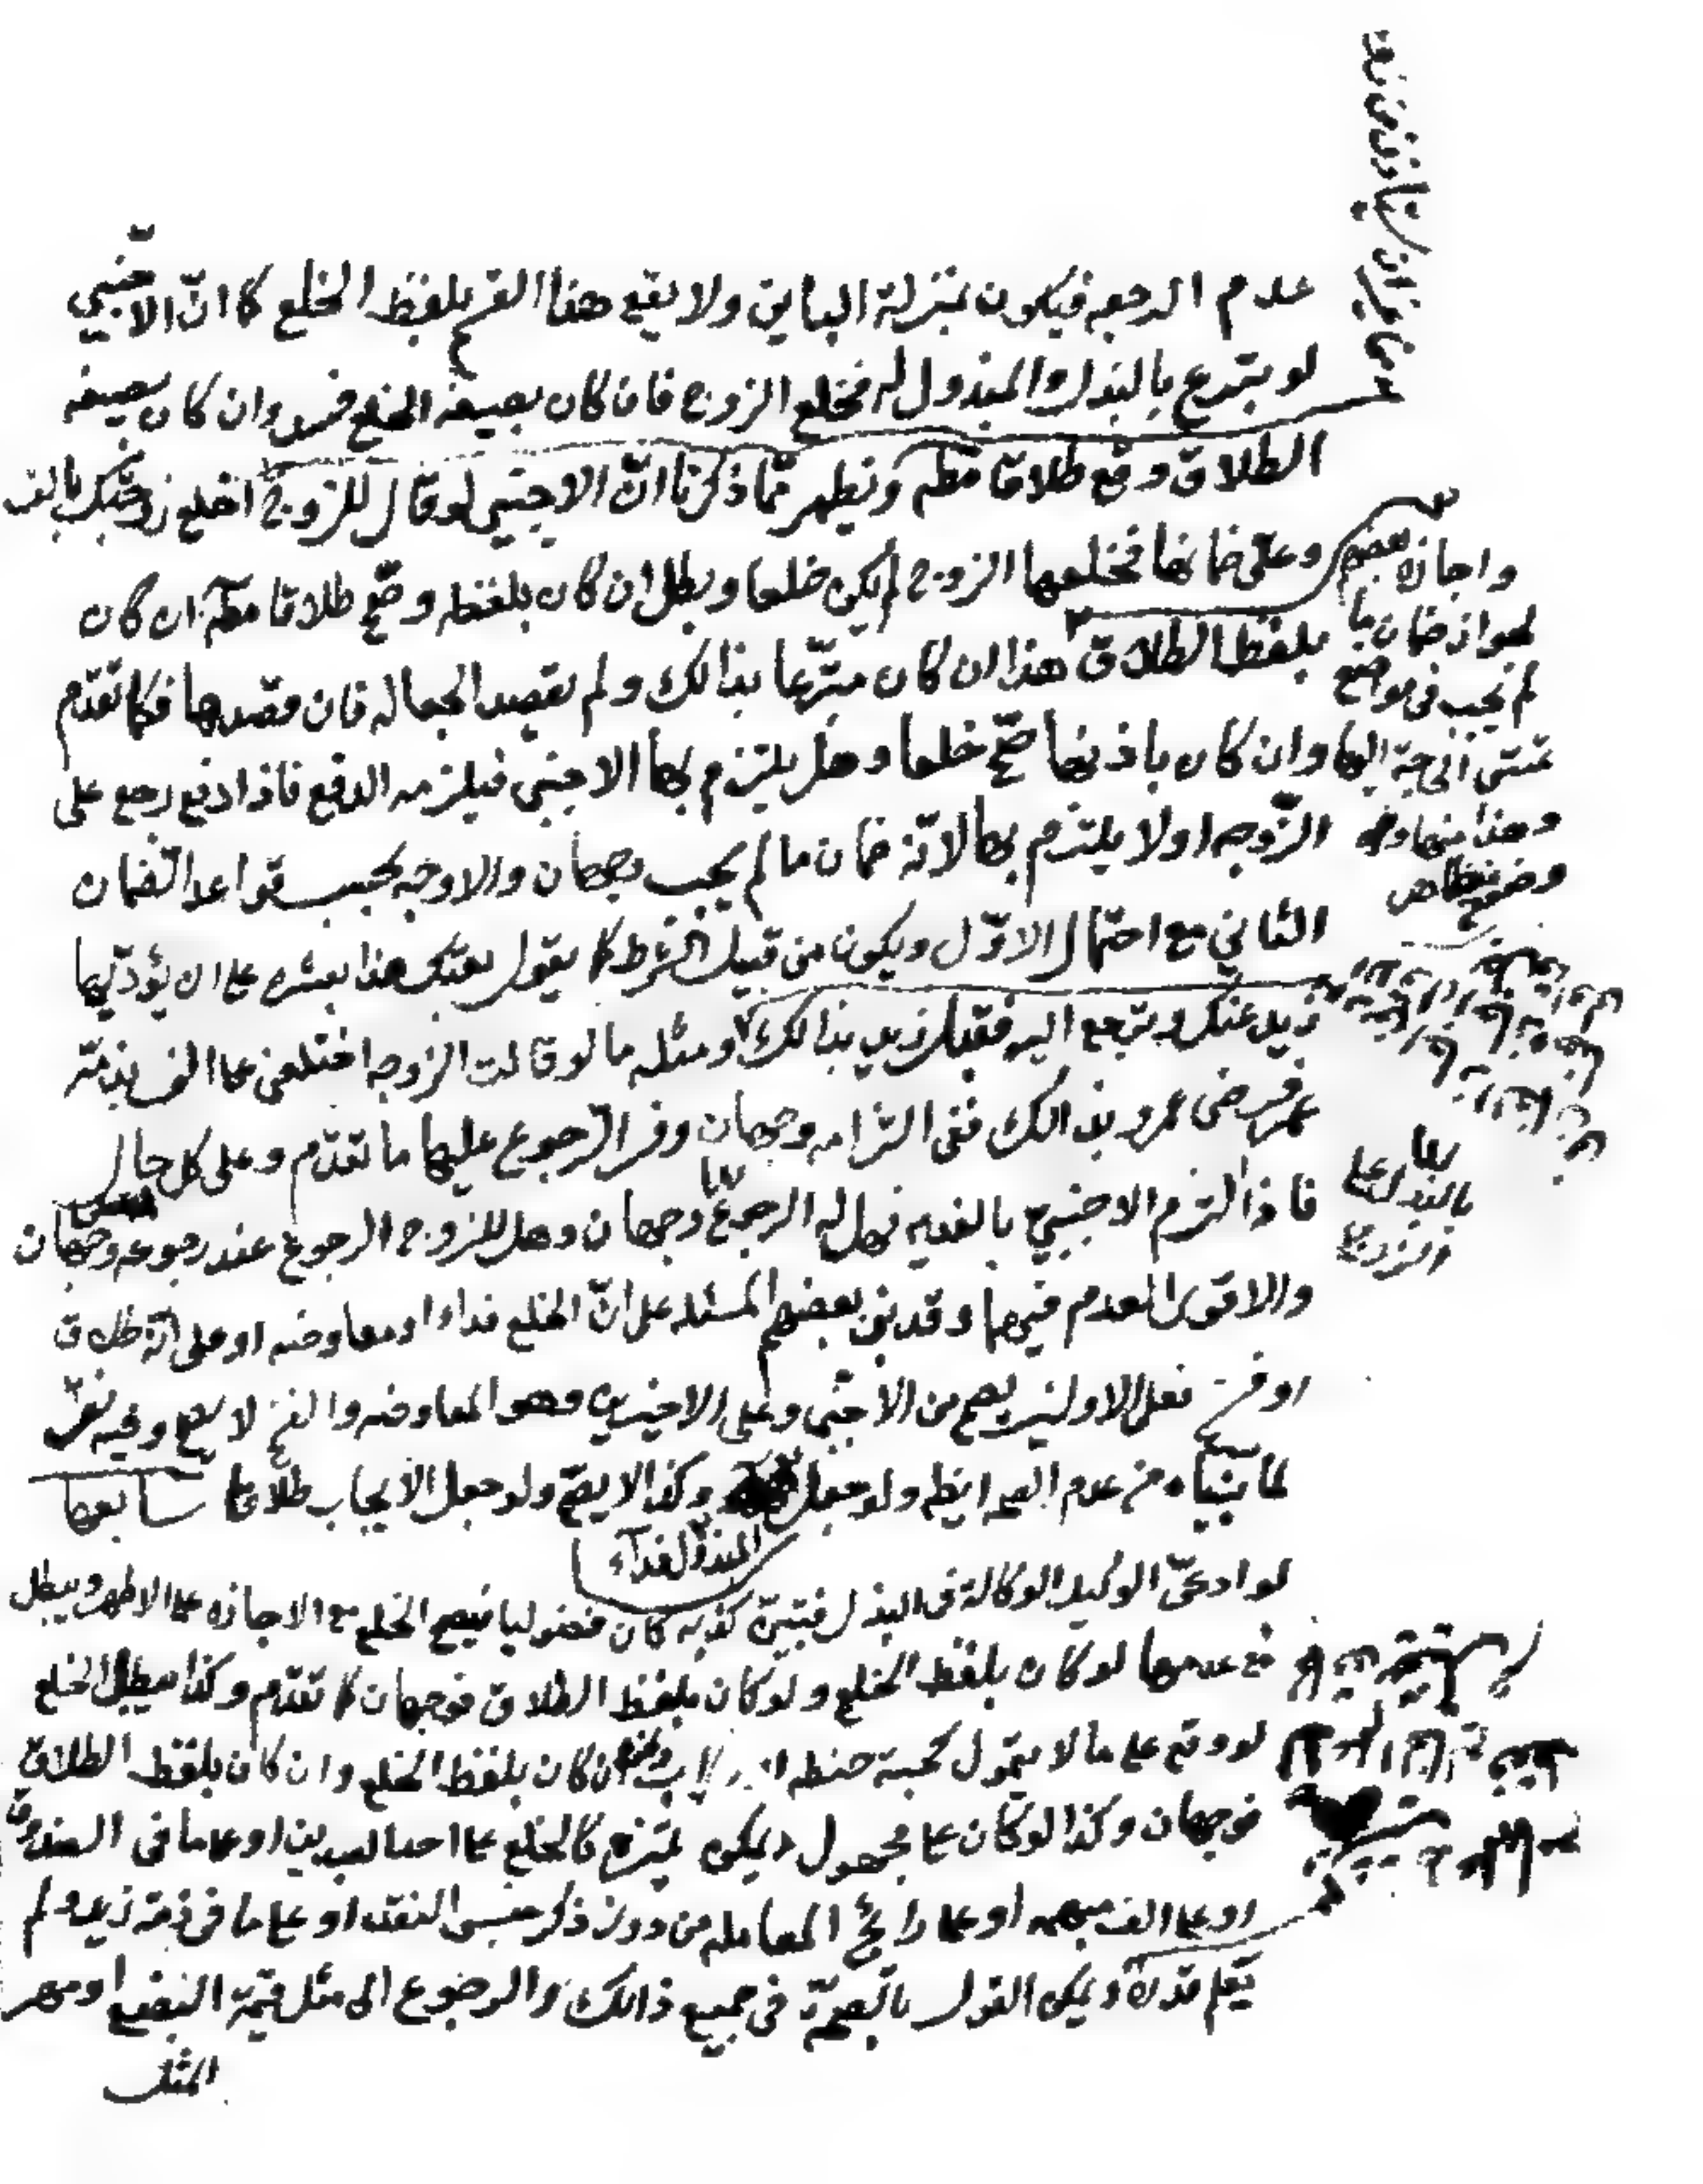 عدم الرجعه فيكون بمنزلة الباين ولا يقع هذا القسم بلفظ الخلع كما انّ الاجنبي
لو يتبرع بالبذل المبذول له فخلع الزوج فان كان بصيغه الخلع فسد وان كان بصيغه
الطلاق وقع طلاقا مطه ويظهر ممّا ذكرنا انّ الاجنبي لو قال للزوج اخلع زوجتك بالف
وعلىّ ضمانها فخلعها الزوج لم يكن خلعا وبطل ان كان بلفظه وصّح طلاقا مطه ان كان
بلفظ الطلاق هذا ان كان متبرّعا بذالك ولم يقصد الجعاله فان قصدها فكما تقدّم
وان كان باذنها صحّ خلعا وهل يلتزم بها الاجنبي فيلزمه الدفع فاذا دفع رجع على
الزّوجه او لا يلتزم بها لانّه ضمان ما لم يجب وجهان والاوجه بحسب قواعد الضّمان
الثاني مع احتمال الاوّل ويكون من قبيل الشرط كما يقول بعتك هذا بعشره على ان يؤدّيها
زيد عنك ويرجع اليه فقبل زيد بذالك ومثله ما لو قالت الزوجه اختلعني على الف بذمّة
عمر فرضى عمرو بذالك ففى التزامه وجهان وفى الرّجوع عليها ما تقدّم وعلى كل حال
فاذا التزم الاجنبيّ بالفديه فهل له الرجوع وجهان وهل للزوج الرجوع عند رجوعه وجهان
والاقوى العدم فيهما وقد بنى بعضهم المسئله على انّ الخلع فداء او معاوضه او على انّه طلاق
او فسخ فعلى الاولين يصح من الاجنبى وعلى الاخيرين وهو المعاوضه والفسخ لا يصح وفيه نظر
لما بيّناه من عدم الصحه ايضا ولو جعل وكذا لا يصّح ولو جعل الايجاب طلاقا سابعها
المبذول لفداء
لو ادعىّ الوكيل الوكالة فى البذل فتبيّن كذبه كان فضوليا فيصح الخلع مع الاجازه على الاظهر ويبطل
مع عدمها لو كان بلفظ الخلع ولو كان بلفظ الطلاق فوجهان كما تقدّم وكذا يبطل الخلع
لو وقع على ما لا يتموّل كحبة حنطه ان كان بلفظ الخلع وان كان بلفظ الطلاق
فوجهان وكذا لو كان على مجهول كالخلع على احد العبدين او على ما فى الصندوق
او على الف مبهمه او على رائج المعامله من دون ذكر جنس النقد او على ما فى ذمّة زيد ولم
يعلم قدره ويمكن القول بالصّحّة فى جميع ذالك والرجوع الى مثل قيمة البضع او مهر
المثل
واجازه بعضهم
لجواز ضمان ما
لم يجب فى مواضع
تمسّ الحاجة اليها
وهذا منها
بالبذل على
الزوجة